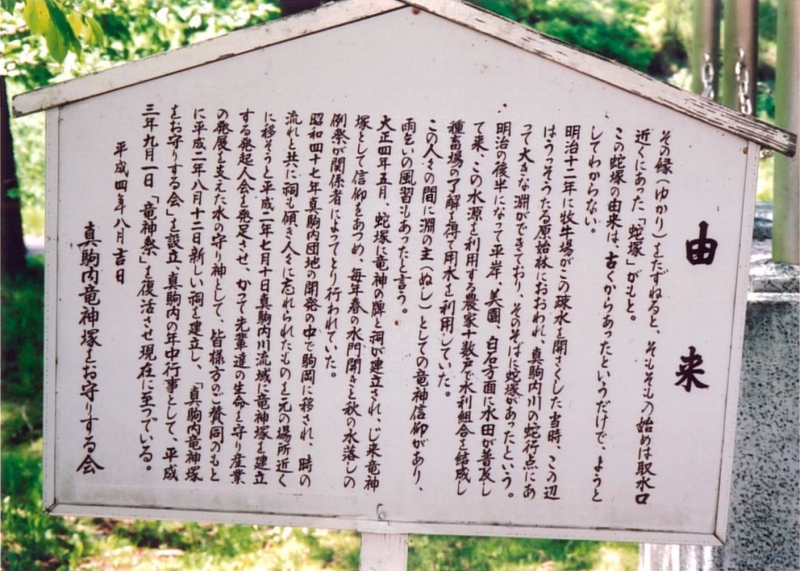 由来
その縁(ゆかり)をたずねると、そもそもの始めは取水口
近くにあった「蛇塚」がもと。
この蛇塚の由来は、古くからあったというだけで、ようと
してわからない。
明治十二年に牧牛場がこの疎水を開さくした当時、この辺
はうっそうたる原始林におおわれ、真駒内川の蛇行点にあ
って大きな淵ができており、そのそばに蛇塚があったという。
明治の後半になって平岸、美園、白石方面に水田が普及し
て来、この水源を利用する農家十数戸で水利組合を結成し
種畜場の了解を得て用水を利用していた。
この人々の間に淵の主(ぬし)としての竜神信仰があり、
雨乞いの風習もあったと言う。
大正四年五月、蛇塚に竜神の牌と祠が建立され、じ来竜神
塚として信仰をあつめ、毎年春の水門開きと秋の水落しの
例祭が関係者によってとり行われていた。
昭和四十七年真駒内団地の開発の中で駒岡に移され、時の
流れと共に祠も傾き人々に忘れられたものを元の場所近く
に移そうと平成二年七月十日真駒内川流域に竜神塚を建立
する発起人会を発足させ、かつて先輩達の生命を守り産業
の発展を支えた水の守り神として、皆様方のご賛同のもと
に平成二年八月十二日新しい祠を建立し、「真駒内竜神塚
をお守りする会」を設立、真駒内の年中行事として、平成
三年九月一日「竜神祭」を復活させ現在に至っている。
平成四年八月吉日
真駒内竜神塚をお守りする会